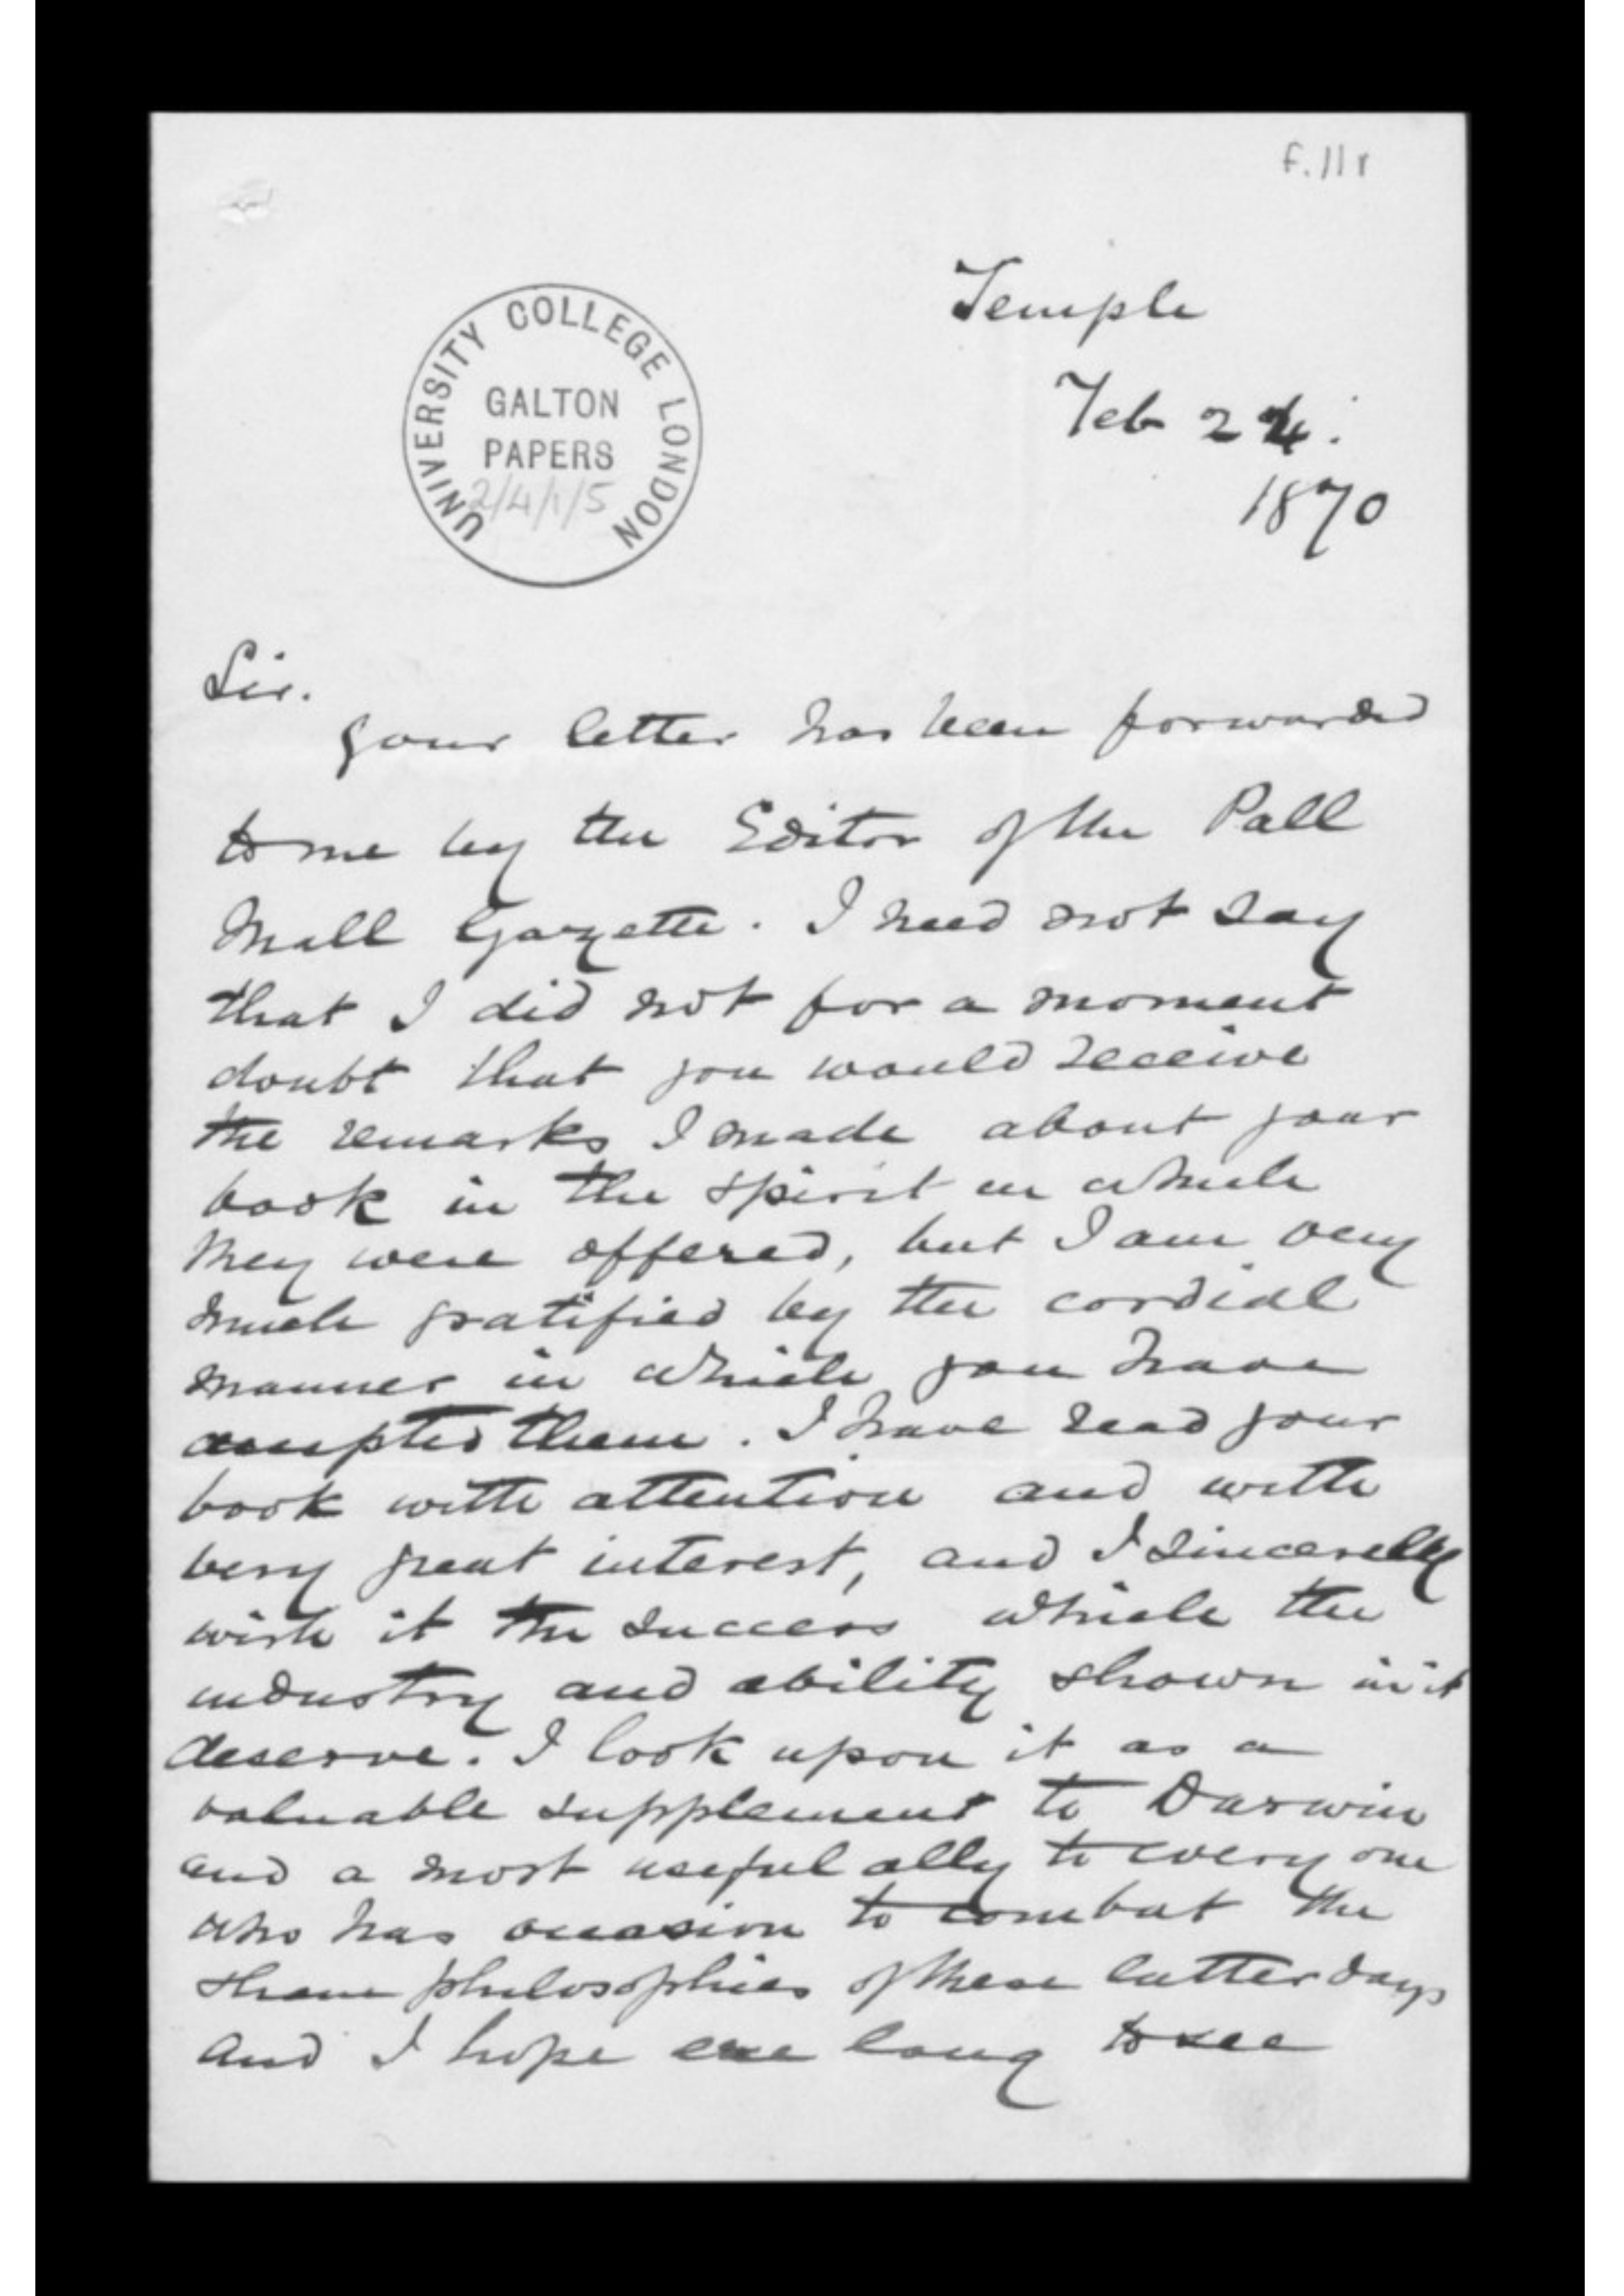 f.11r
Temple
Feb 24.
1870
UNIVERSITY COLLEGE LONDON
GALTON
PAPERS
2/4/1/5
Sir.
your letter has been forwarded
to me by the Editor of the Pall
Mall Gazette. I need not say
that I did not for a moment
doubt that you would receive
the remarks I made about your
book in the spirit in which
they were offered, but I am very
much gratified by the cordial
manner in which you have
accepted them. I have read your
book with attention and with
very great interest, and I sincerely
wish it the success which the
industry and ability shown in it
deserve. I look upon it as a
valuable supplement to Darwin
and a most useful ally to every one
who has occasion to combat the
sham philosophies of these latter days
and I hope ere long to see